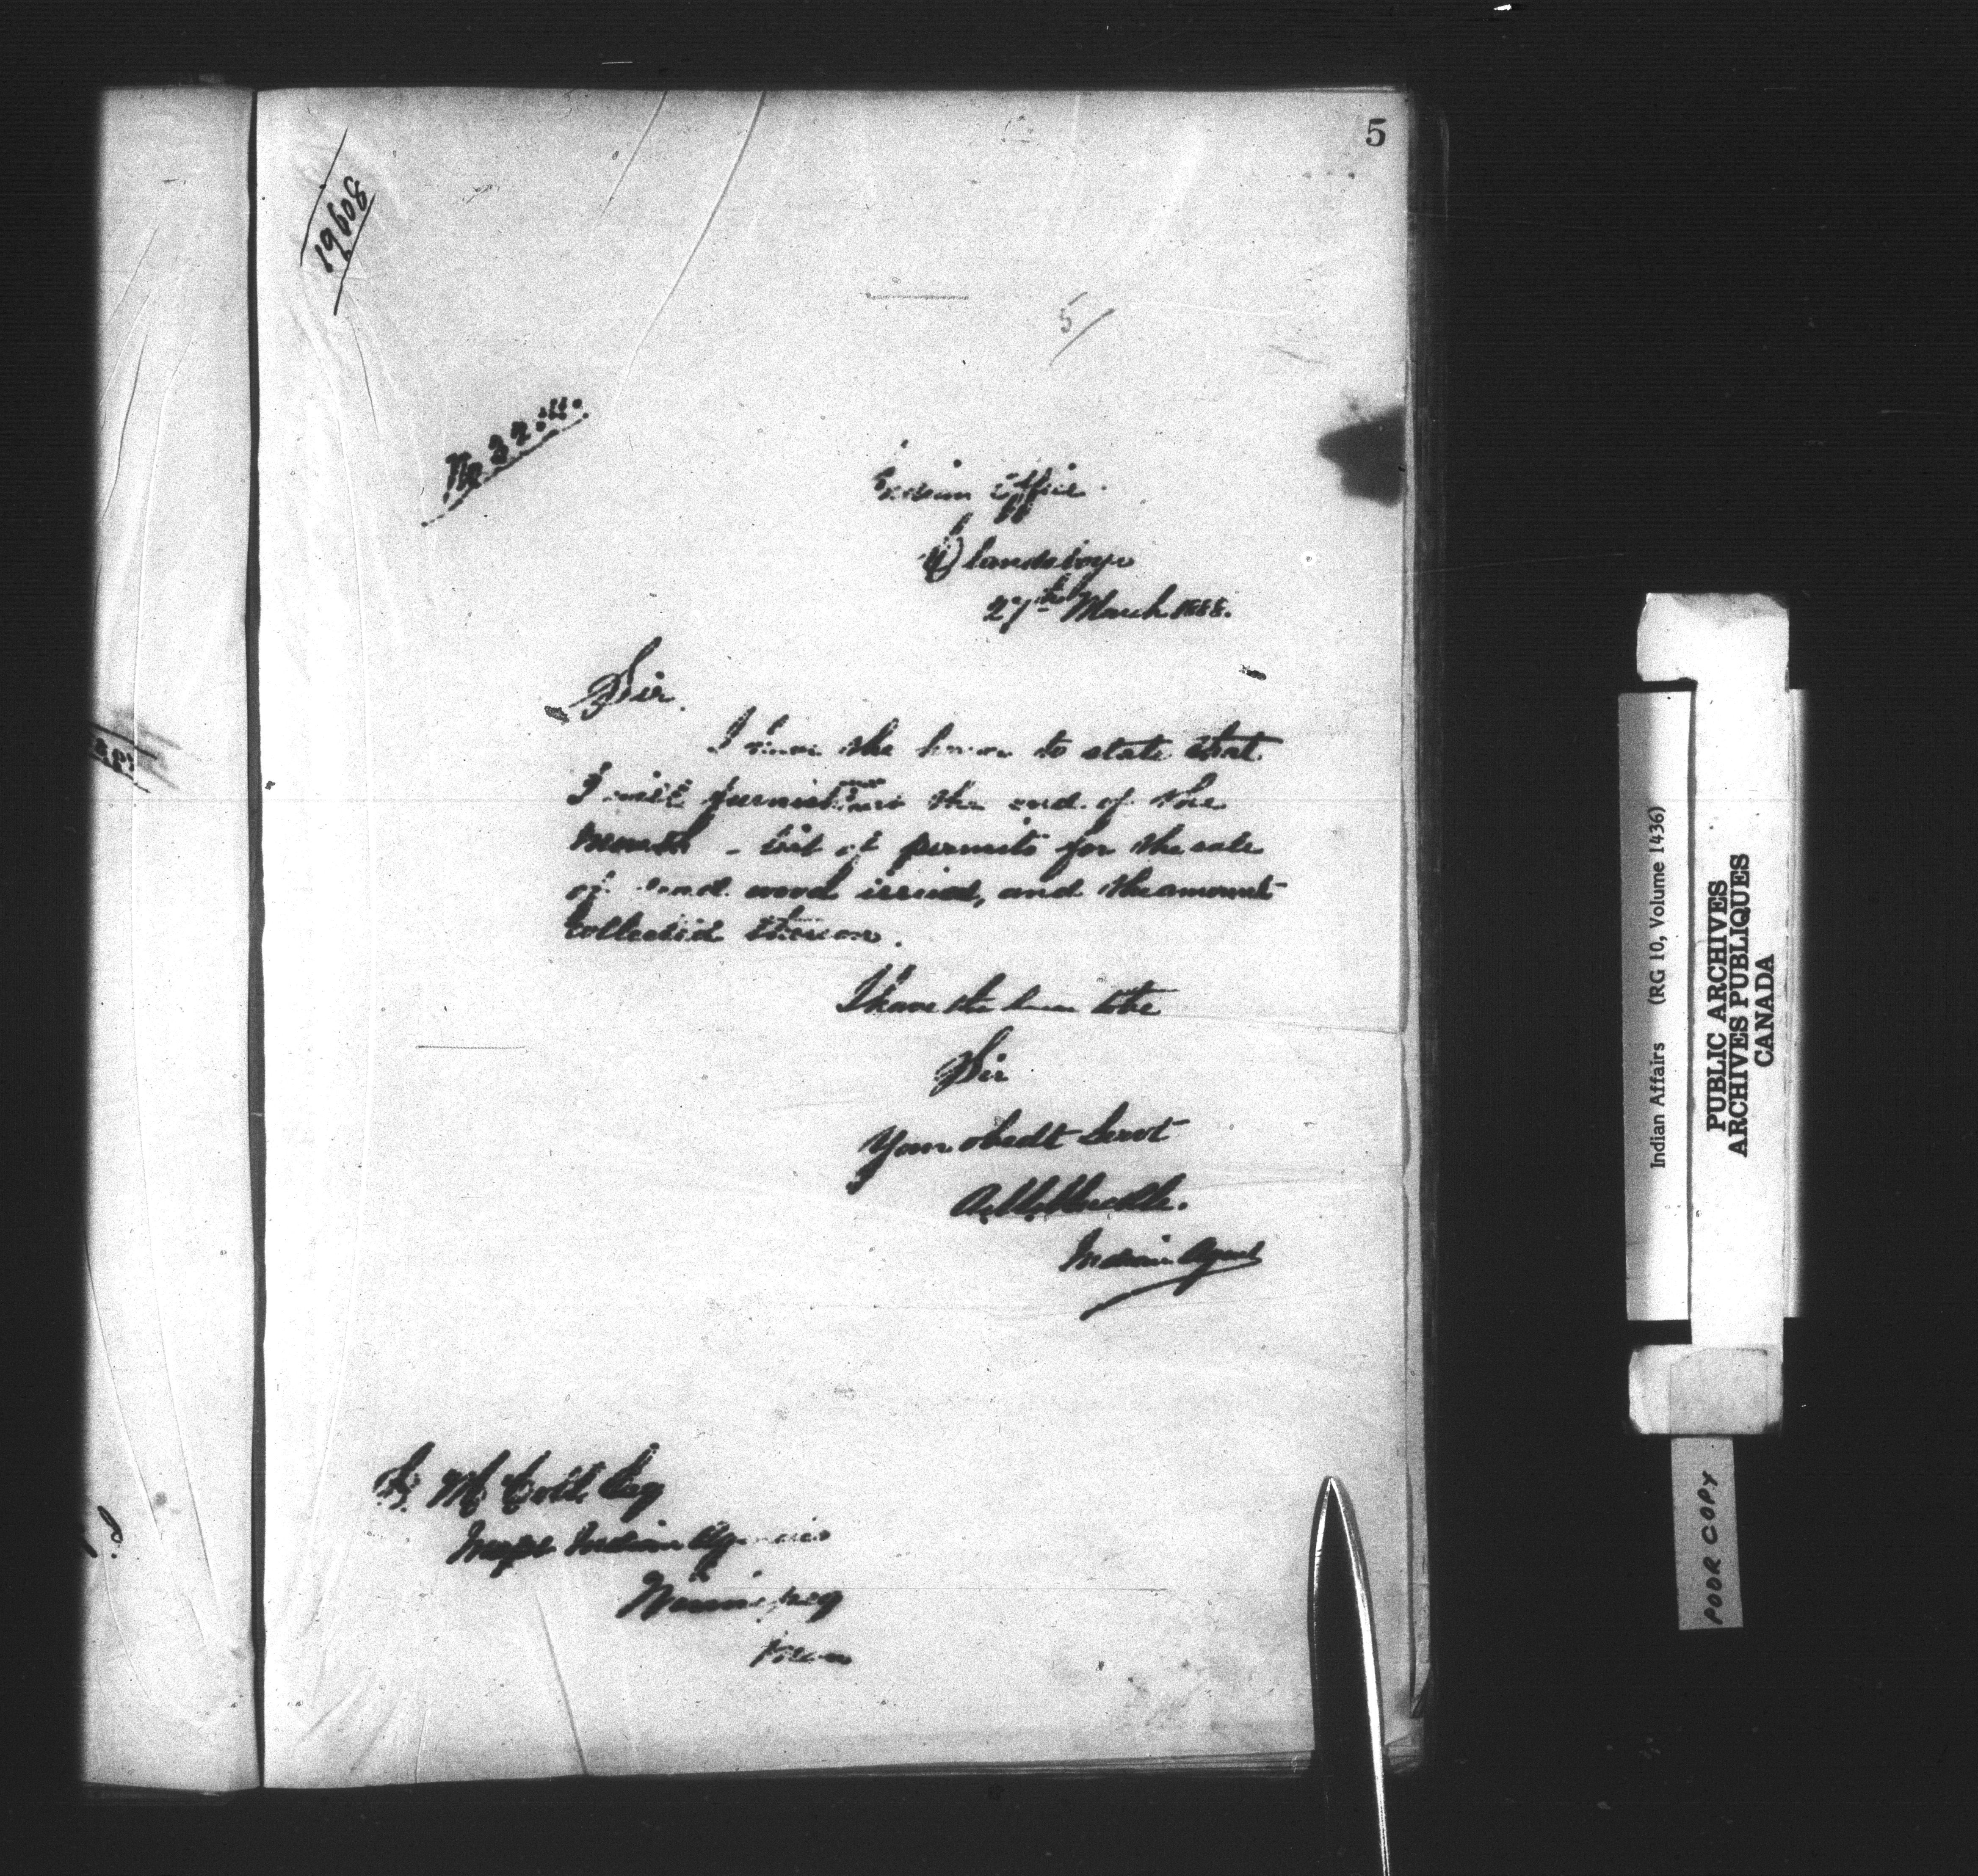 5
19608
5/
No 32
Indian Office
Clandeboye
27th March 1888.
Sir.
I have the honor to state that
I will furnish you the end of the
month - list of permits for the sale
of dead wood issued, and the amount
Collected thereon.
I have the honor to be
Sir
Your obedt Servt
A. M. Muckle.
Indian Agent
E. McColl Esq
Inspr Indian Agencies
Winnipeg
Man
Indian Affairs (RG 10, Volume 1436)
PUBLIC ARCHIVES
ARCHIVES PUBLIQUES
CANADA
POOR COPY